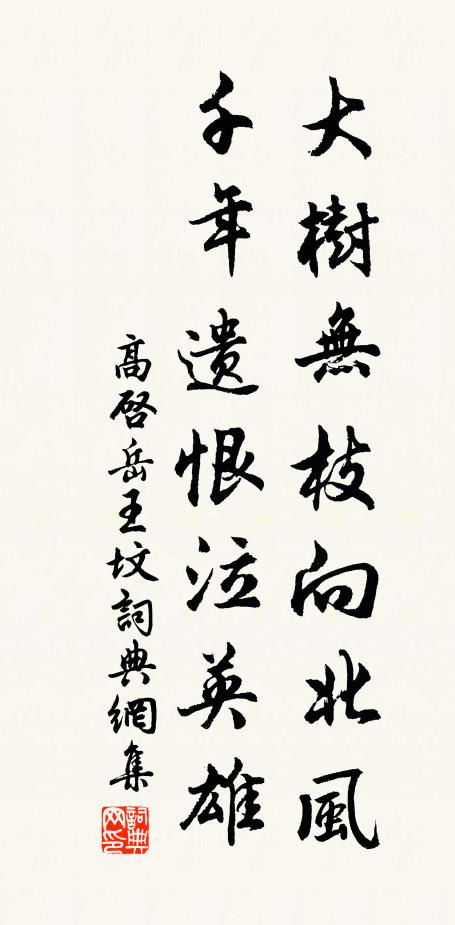 大樹無枝向北風
千年遗恨泣英雄
高啓岳王坟詞典網集
詞典网印